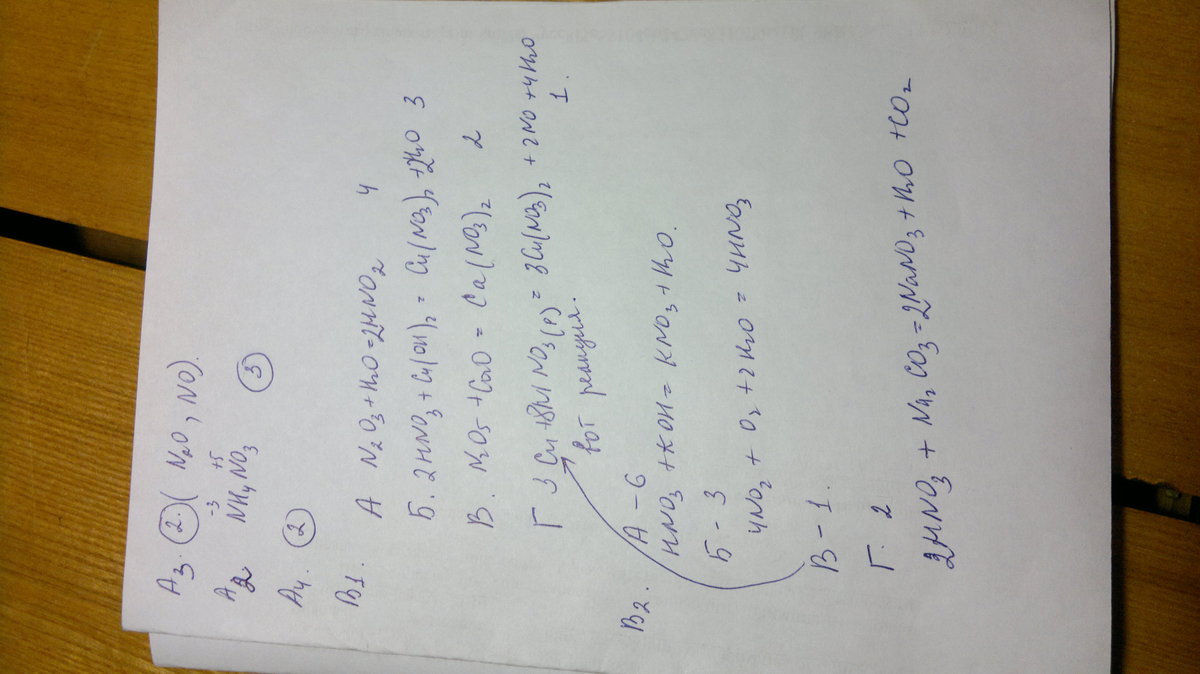 А3. 2. (N2O, NO).
А2 N⁻³H4N⁺⁵O3 3
А4. 2
В1. А N2O3 + H2O = 2HNO2 4
Б. 2HNO3 + Cu(OH)2 = Cu(NO3)2 + 2H2O 3
В. N2O5 + CaO = Ca(NO3)2 2
Г 3Cu + 8HNO3(р) = 3Cu(NO3)2 + 2NO + 4H2O 1.
вот реакция.
В2. А – 6
HNO3 + KOH = KNO3 + H2O.
Б – 3
4NO2 + O2 + 2H2O = 4HNO3
В – 1.
Г. 2
2HNO3 + Na2CO3 = 2NaNO3 + H2O + CO2